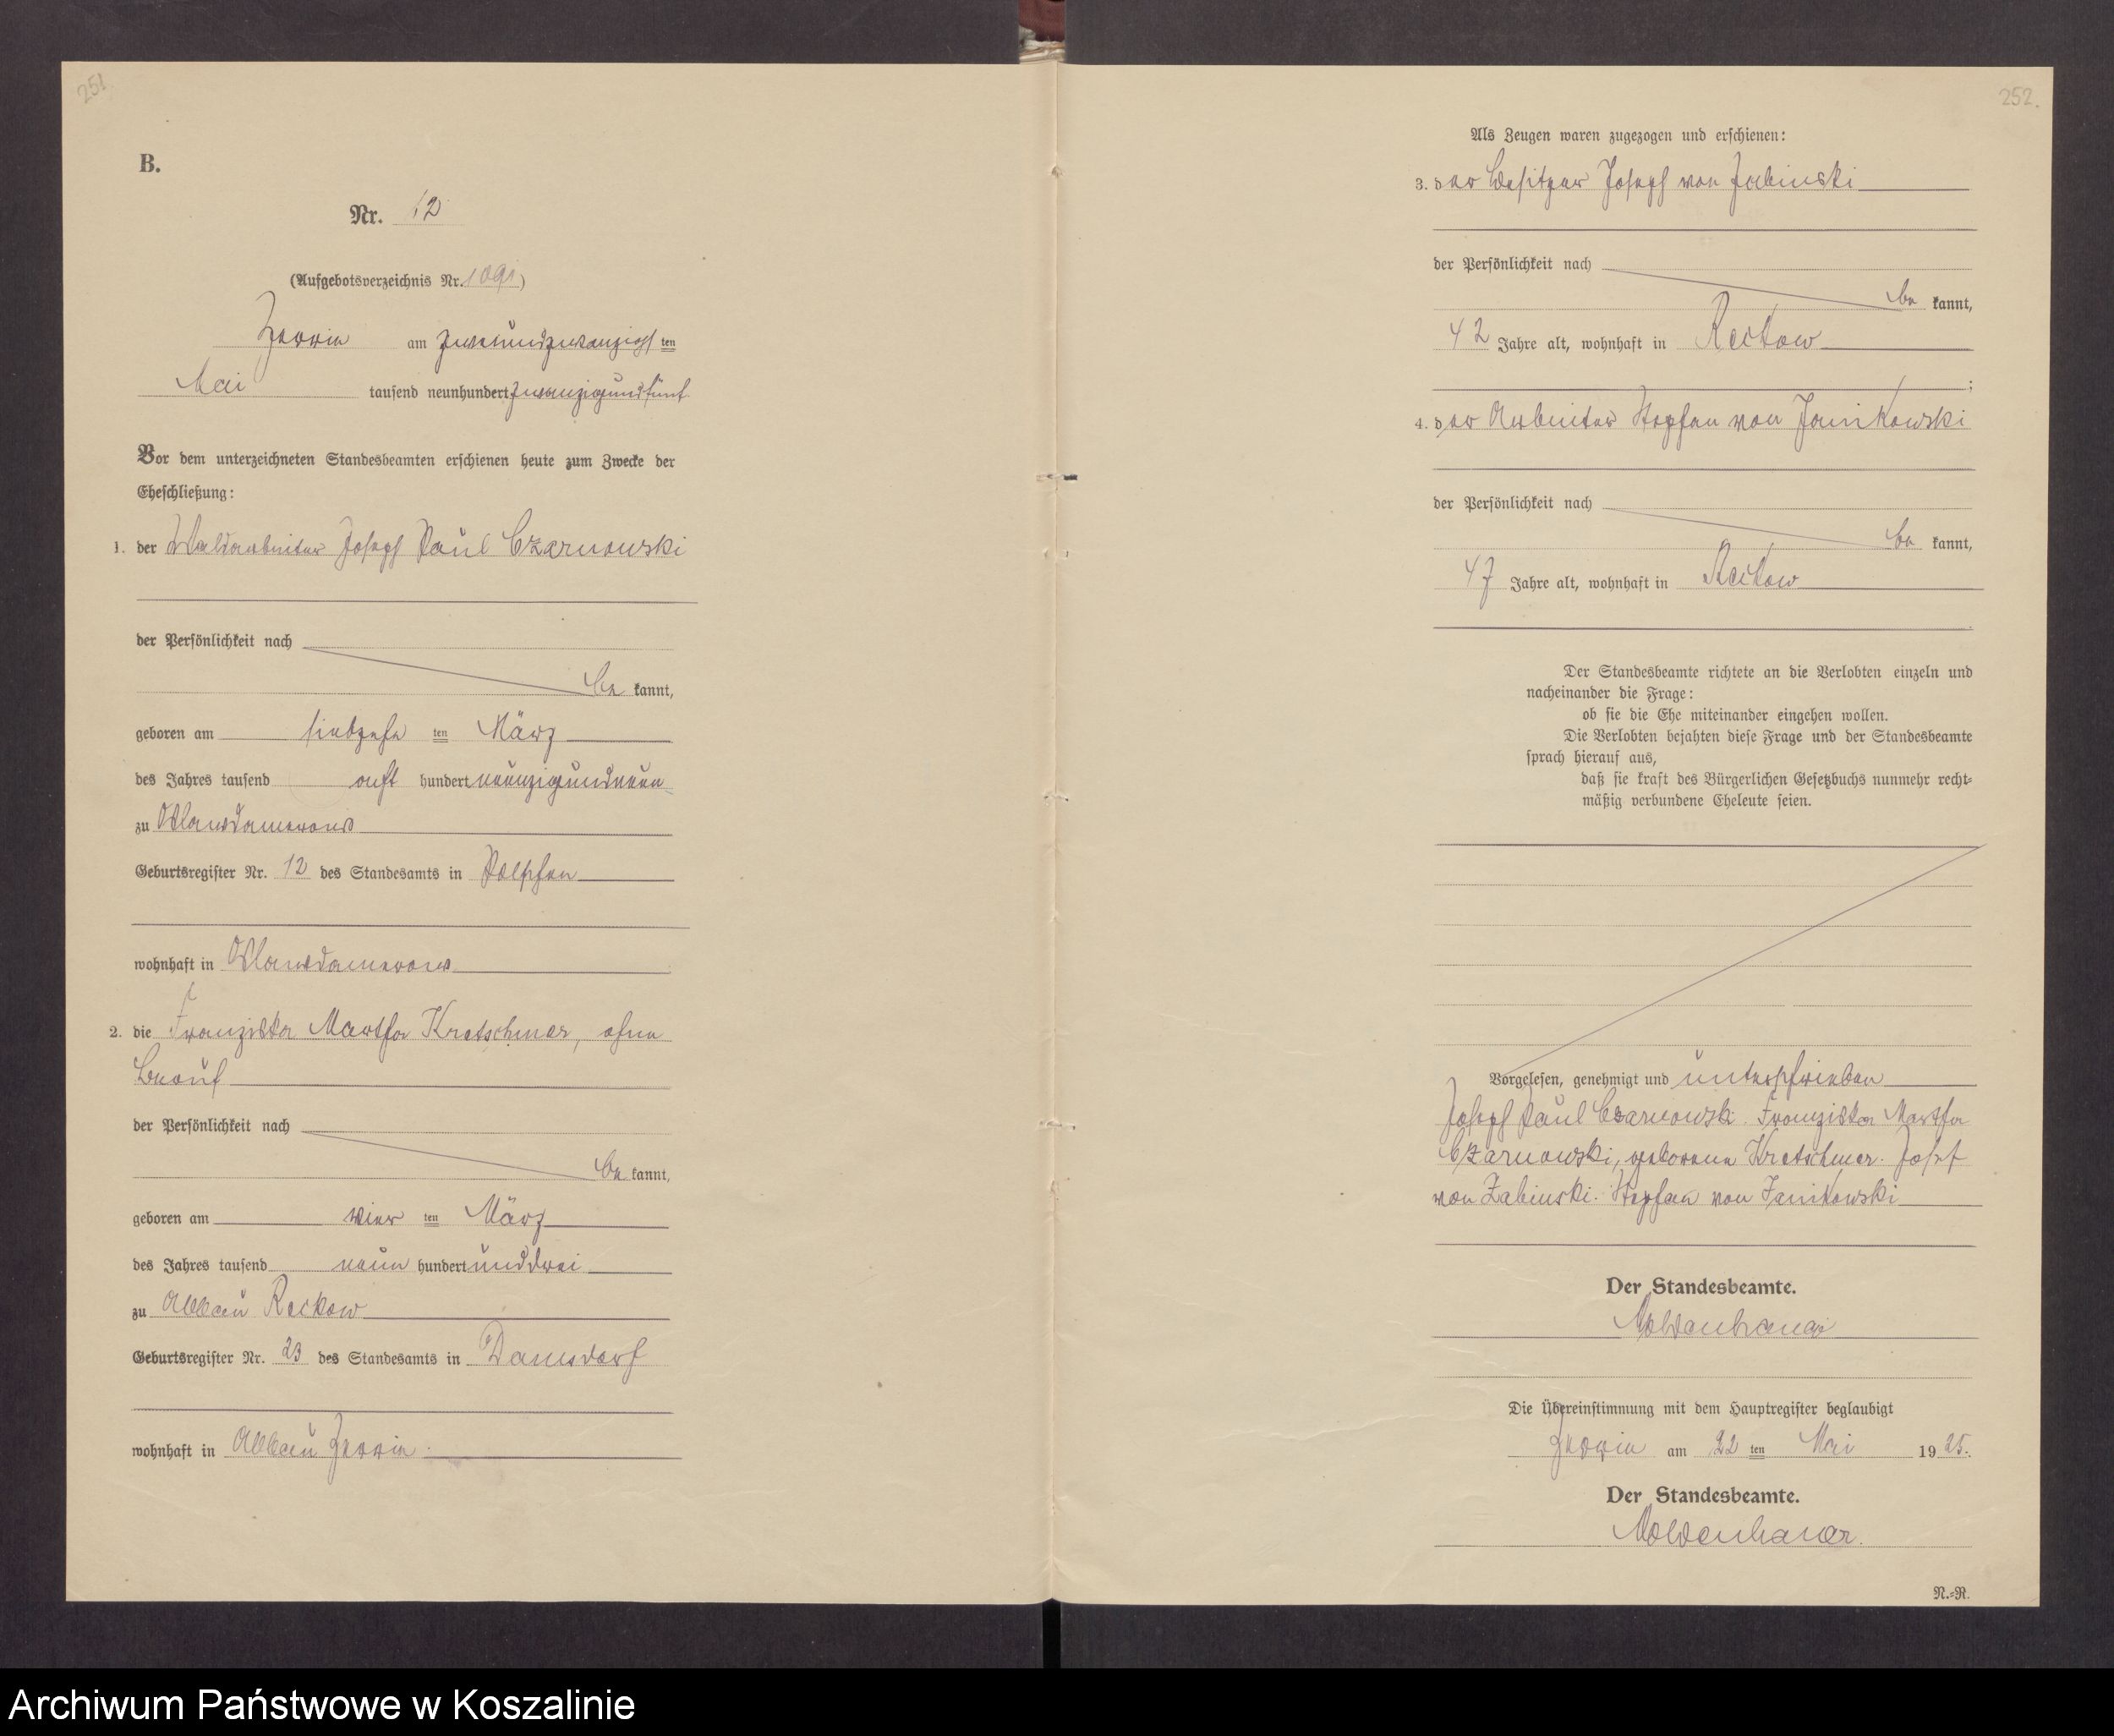 251
B.
Nr. 12
(Aufgebotsverzeichnis Nr. 1091)
Zerrin am zweiundzwanzigsten
Mai tausend neunhundert zwanzigundfünf
Vor dem unterzeichneten Standesbeamten erschienen heute zum Zwecke der
Eheschließung:
1. der Waldarbeiter Joseph Paul Czarnowski
der Persönlichkeit nach
be kannt,
geboren am siebzehn ten März
des Jahres tausend acht hundert neunzigundneun
zu
Geburtsregister Nr. 12 des Standesamts in
wohnhaft in
2. die Franziska Martha Kretschmer, ohne
Beruf
der Persönlichkeit nach
be kannt,
geboren am vier ten März
des Jahres tausend neun hundert unddrei
zu Abbau Reckow
Geburtsregister Nr. 23 des Standesamts in Damsdorf
wohnhaft in Abbau Zerrin.
252.
Als Zeugen waren zugezogen und erschienen:
3. der Besitzer Joseph von Zabinski
der Persönlichkeit nach
be kannt,
42 Jahre alt, wohnhaft in Reckow
;
4. der Arbeiter Stephan von Janikowski
der Persönlichkeit nach
be kannt,
47 Jahre alt, wohnhaft in Reckow
Der Standesbeamte richtete an die Verlobten einzeln und
nacheinander die Frage:
ob sie die Ehe miteinander eingehen wollen.
Die Verlobten bejahten diese Frage und der Standesbeamte
sprach hierauf aus,
daß sie kraft des Bürgerlichen Gesetzbuchs nunmehr recht-
mäßig verbundene Eheleute seien.
Vorgelesen, genehmigt und unterschrieben
Joseph Paul Czarnowski. Franziska Martha
Czarnowski, geborene Kretschmer. Josef
von Zabinski. Stephan von Janikowski
Der Standesbeamte.
Moldenhauer
Die Übereinstimmung mit dem Hauptregister beglaubigt
Zerrin am 22 ten Mai 1925.
Der Standesbeamte.
Moldenhauer.
N.-R.
Archiwum Państwowe w Koszalinie